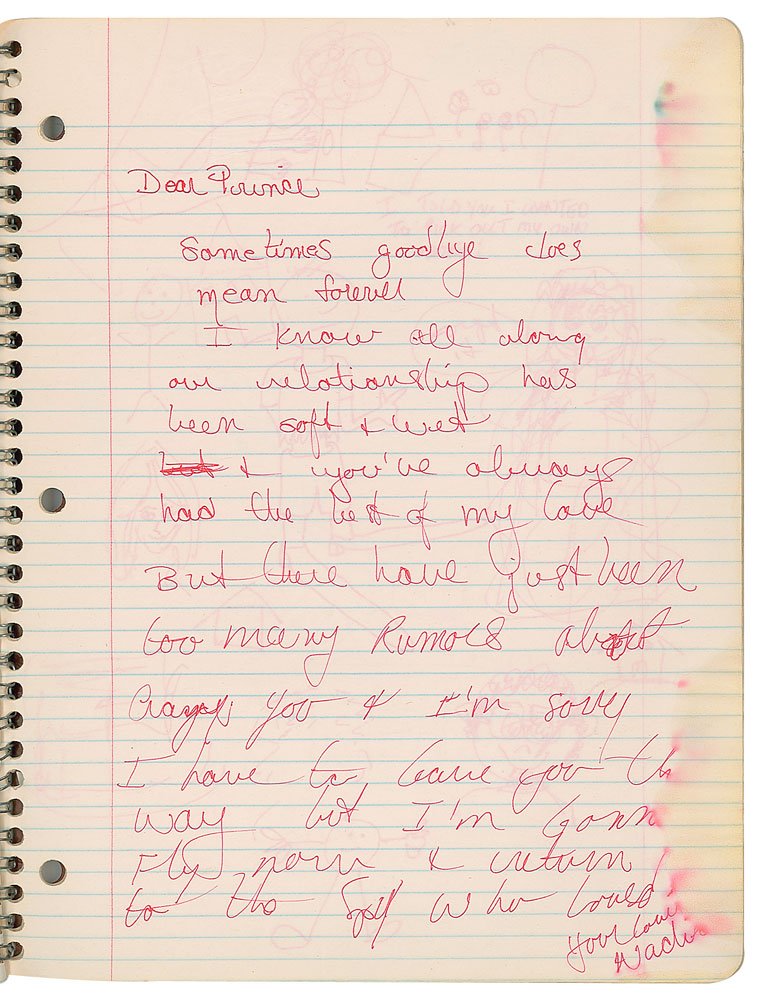 Dear Prince
Sometimes goodbye does
mean forever
I know all along
our relationship has
been soft & wet
but & you've always
had the best of my love
But there have just been
too many Rumors about
Crazy you & I'm sorry
I have to leave you th
way but I'm Gonn
Fly now & return
to the Spy who loved
Your love